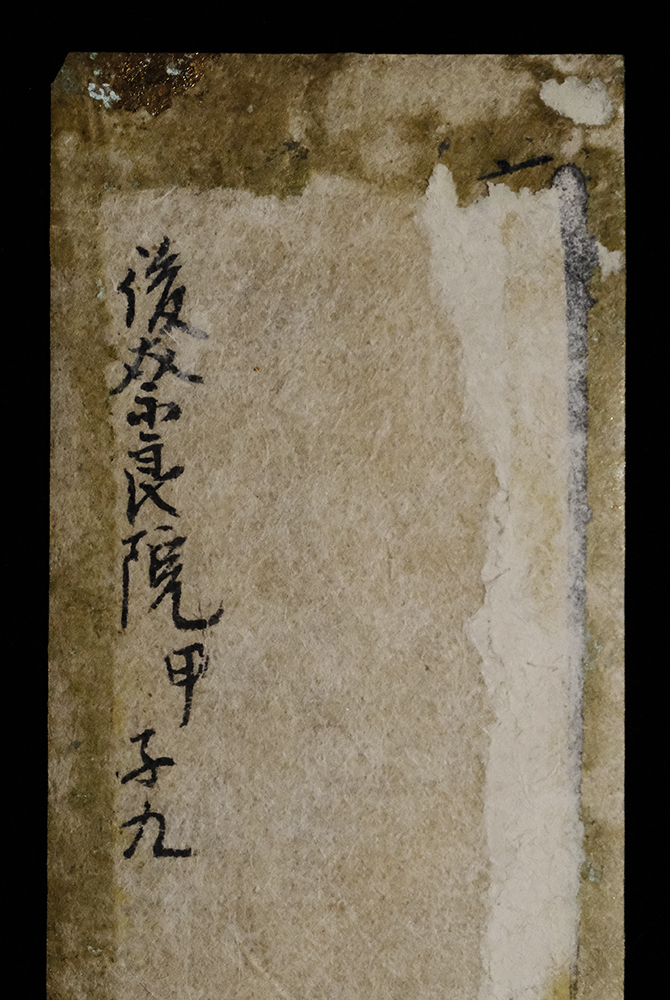 後奈良院甲子九